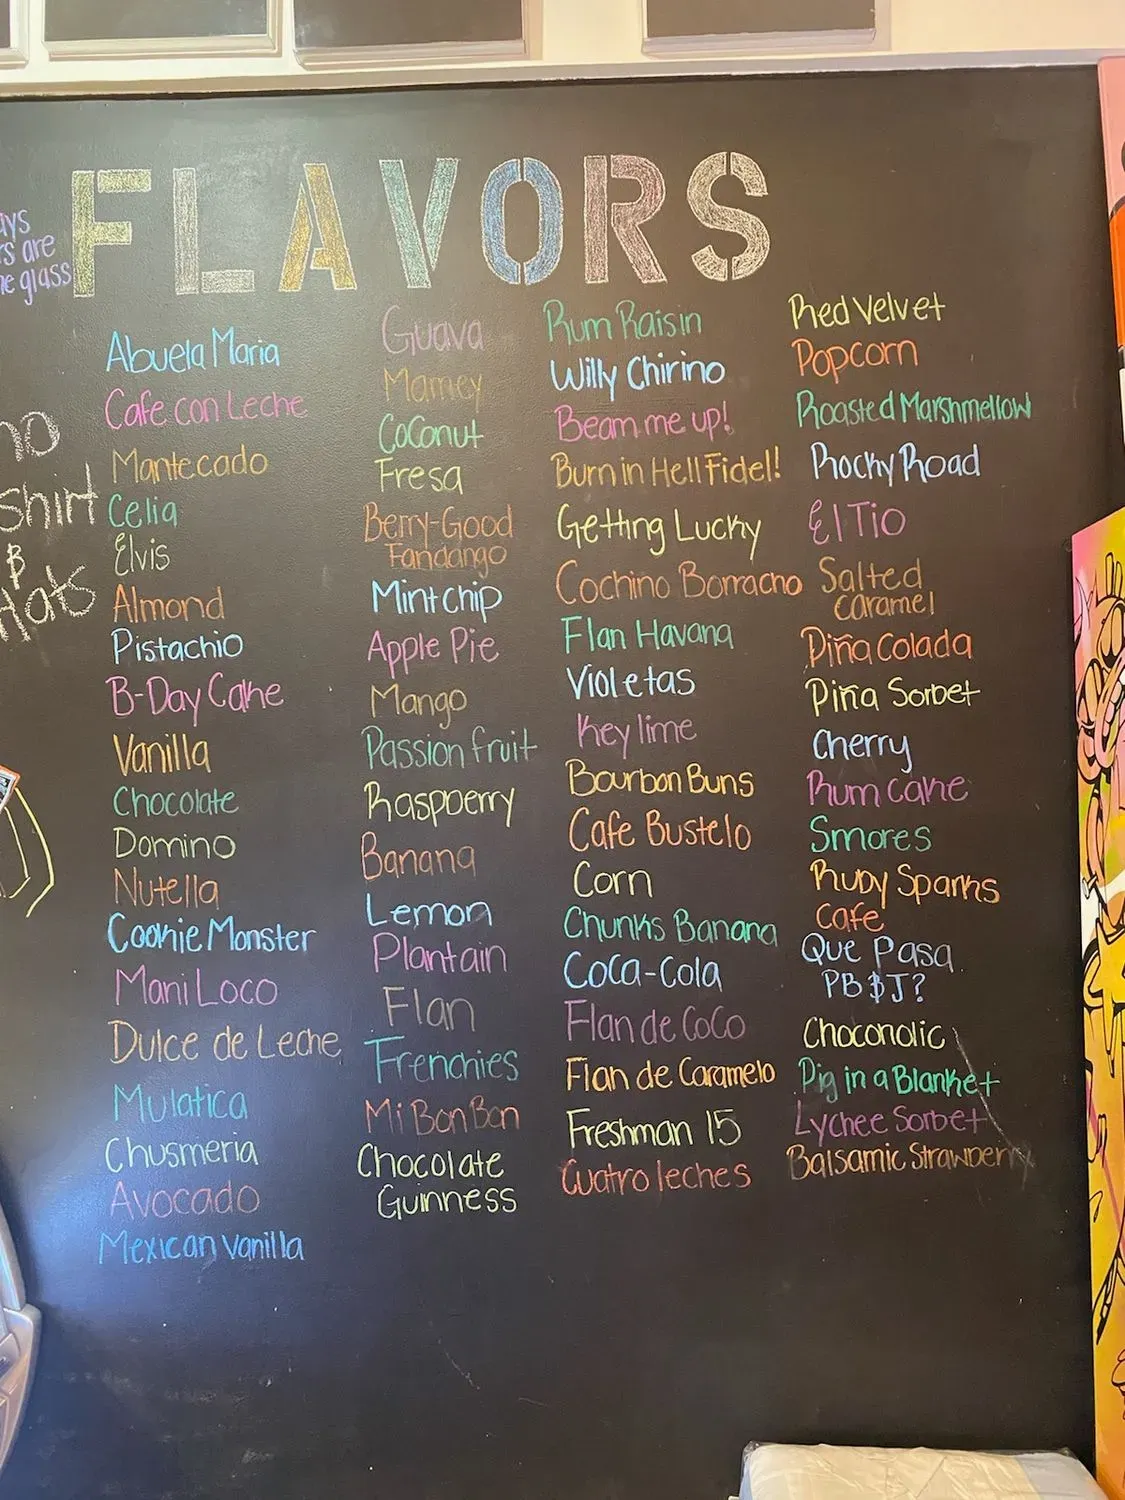 FLAVORS
ays
rs are
he glass
no
shirt
$
Hats
Abuela Maria
Cafe con Leche
Mantecado
Celia
Elvis
Almond
Pistachio
B-Day Cake
Vanilla
Chocolate
Domino
Nutella
Cookie Monster
Mani Loco
Dulce de Leche
Mulatica
Chusmeria
Avocado
Mexican Vanilla
Guava
Mamey
Coconut
Fresa
Berry-Good
Fandango
Mint chip
Apple Pie
Mango
Passion fruit
Raspberry
Banana
Lemon
Plantain
Flan
Frenchies
Mi Bon Bon
Chocolate
Guinness
Rum Raisin
Willy Chirino
Beam me up!
Burn in Hell Fidel!
Getting Lucky
Cochino Borracho
Flan Havana
Violetas
Key lime
Bourbon Buns
Cafe Bustelo
Corn
Chunks Banana
Coca-Cola
Flan de Coco
Flan de Caramelo
Freshman 15
Cuatro leches
Red Velvet
Popcorn
Roasted Marshmellow
Rocky Road
El Tio
Salted
Caramel
Piña Colada
Piña Sorbet
Cherry
Rum cake
Smores
Ruby Sparks
Cafe
Que Pasa
PB$J?
Chocoholic
Pig in a Blanket
Lychee Sorbet
Balsamic Strawberry